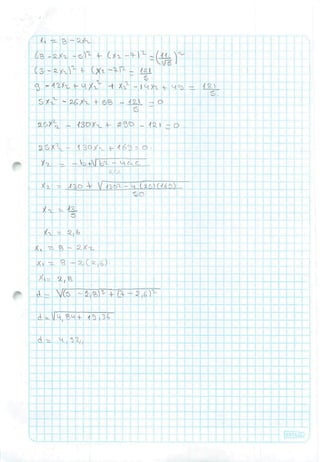 x₁ = 8 - 2x₂
(8 - 2x₂ - 5)² + (x₂ - 7)² = (11/√5)²
(3 - 2x₂)² + (x₂ - 7)² = 121/5
9 - 12x₂ + 4x₂² + x₂² - 14x₂ + 49 = 121/5
5x₂² - 26x₂ + 58 - 121/5 = 0
25x²₂ - 130x₂ + 290 - 121 = 0
25x²₂ - 130x₂ + 169 = 0
x₂ = -b ± √b² - 4ac / 2a
x₂ = 130 ± √130² - 4(25)(169) / 50
x₂ = 13/5
x₂ = 2,6
x₁ = 8 - 2x₂
x₁ = 8 - 2(2,6)
x₁ = 2,8
d = √(5 - 2,8)² + (7 - 2,6)²
d = √4,84 + 19,36
d = 4,92